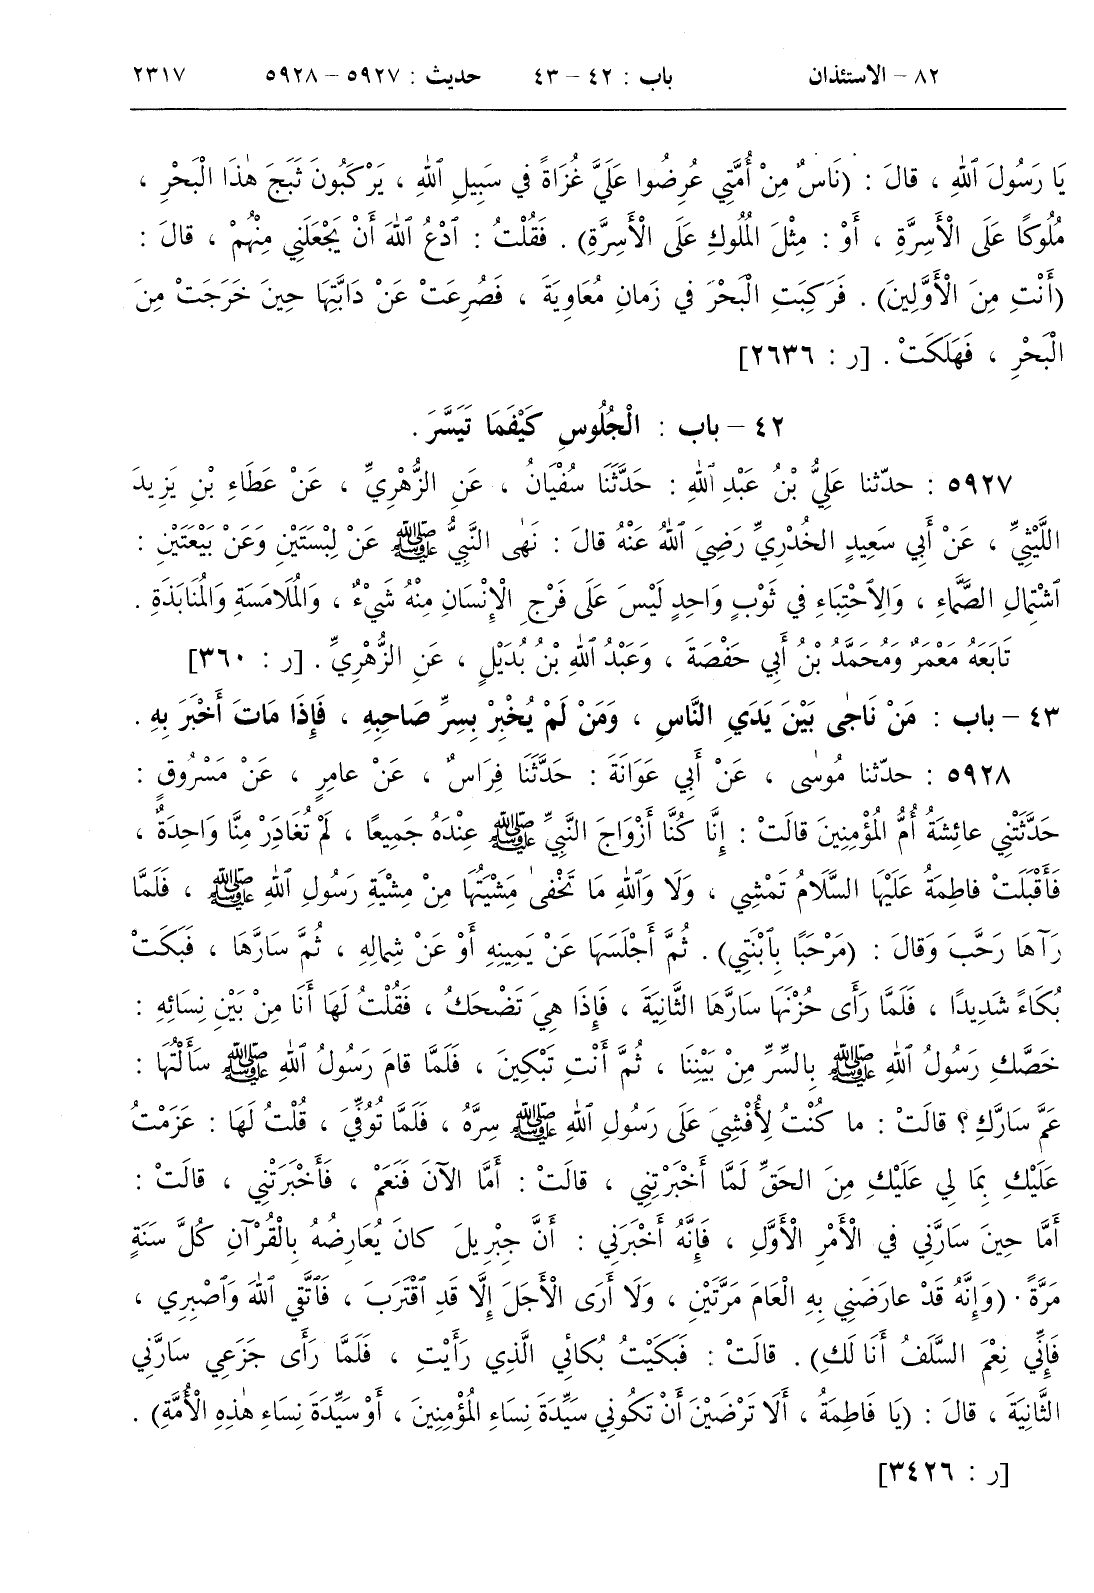 ٨٢ – الاستئذان باب : ٤٢ – ٤٣ حديث : ٥٩٢٧ – ٥٩٢٨ ٢٣١٧
يَا رَسُولَ ٱللهِ ، قالَ : (نَاسٌ مِنْ أُمَّتِي عُرِضُوا عَلَيَّ غُزَاةً في سَبِيلِ ٱللهِ ، يَرْكَبُونَ ثَبَجَ هٰذَا الْبَحْرِ ،
مُلُوكًا عَلَى الْأَسِرَّةِ ، أَوْ : مِثْلَ المُلُوكِ عَلَى الْأَسِرَّةِ) . فَقُلْتُ : ٱدْعُ ٱللهَ أَنْ يَجْعَلَنِي مِنْهُمْ ، قالَ :
(أَنْتِ مِنَ الْأَوَّلِينَ) . فَرَكِبَتِ الْبَحْرَ في زَمانِ مُعَاوِيَةَ ، فَصُرِعَتْ عَنْ دَابَّتِهَا حِينَ خَرَجَتْ مِنَ
الْبَحْرِ ، فَهَلَكَتْ . [ر : ٢٦٣٦]
٤٢ – باب : الْجُلُوسِ كَيْفَمَا تَيَسَّرَ .
٥٩٢٧ : حدّثنا عَلِيُّ بْنُ عَبْدِ ٱللهِ : حَدَّثَنَا سُفْيَانُ ، عَنِ الزُّهْرِيِّ ، عَنْ عَطَاءِ بْنِ يَزِيدَ
اللَّيْثِيِّ ، عَنْ أَبِي سَعِيدٍ الخُدْرِيِّ رَضِيَ ٱللهُ عَنْهُ قالَ : نَهٰى النَّبِيُّ ﷺ عَنْ لِبْسَتَيْنِ وَعَنْ بَيْعَتَيْنِ :
ٱشْتِمَالِ الصَّمَّاءِ ، وَالِٱحْتِبَاءِ في ثَوْبٍ وَاحِدٍ لَيْسَ عَلَى فَرْجِ الْإِنْسَانِ مِنْهُ شَيْءٌ ، وَالمُلَامَسَةِ وَالمُنَابَذَةِ .
تَابَعَهُ مَعْمَرٌ وَمُحَمَّدُ بْنُ أَبِي حَفْصَةَ ، وَعَبْدُ ٱللهِ بْنُ بُدَيْلٍ ، عَنِ الزُّهْرِيِّ . [ر : ٣٦٠]
٤٣ – باب : مَنْ نَاجٰى بَيْنَ يَدَيِ النَّاسِ ، وَمَنْ لَمْ يُخْبِرْ بِسِرِّ صَاحِبِهِ ، فَإِذَا مَاتَ أَخْبَرَ بِهِ .
٥٩٢٨ : حدّثنا مُوسٰى ، عَنْ أَبِي عَوَانَةَ : حَدَّثَنَا فِرَاسٌ ، عَنْ عامِرٍ ، عَنْ مَسْرُوقٍ :
حَدَّثَتْنِي عائِشَةُ أُمُّ المُؤْمِنِينَ قالَتْ : إِنَّا كُنَّا أَزْوَاجَ النَّبِيِّ ﷺ عِنْدَهُ جَمِيعًا ، لَمْ تُغَادَرْ مِنَّا وَاحِدَةٌ ،
فَأَقْبَلَتْ فاطِمَةُ عَلَيْهَا السَّلَامُ تَمْشِي ، وَلَا وَٱللهِ مَا تَخْفٰى مَشْيَتُهَا مِنْ مِشْيَةِ رَسُولِ ٱللهِ ﷺ ، فَلَمَّا
رَآهَا رَحَّبَ وَقالَ : (مَرْحَبًا بِٱبْنَتِي) . ثُمَّ أَجْلَسَهَا عَنْ يَمِينِهِ أَوْ عَنْ شِمالِهِ ، ثُمَّ سَارَّهَا ، فَبَكَتْ
بُكَاءً شَدِيدًا ، فَلَمَّا رَأَى حُزْنَهَا سَارَّهَا الثَّانِيَةَ ، فَإِذَا هِيَ تَضْحَكُ ، فَقُلْتُ لَهَا أَنَا مِنْ بَيْنِ نِسَائِهِ :
خَصَّكِ رَسُولُ ٱللهِ ﷺ بِالسِّرِّ مِنْ بَيْنِنَا ، ثُمَّ أَنْتِ تَبْكِينَ ، فَلَمَّا قامَ رَسُولُ ٱللهِ ﷺ سَأَلْتُهَا :
عَمَّ سَارَّكِ؟ قالَتْ : ما كُنْتُ لِأُفْشِيَ عَلَى رَسُولِ ٱللهِ ﷺ سِرَّهُ ، فَلَمَّا تُوُفِّيَ ، قُلْتُ لَهَا : عَزَمْتُ
عَلَيْكِ بِمَا لِي عَلَيْكِ مِنَ الحَقِّ لَمَّا أَخْبَرْتِنِي ، قالَتْ : أَمَّا الآنَ فَنَعَمْ ، فَأَخْبَرَتْنِي ، قالَتْ :
أَمَّا حِينَ سارَّنِي في الْأَمْرِ الْأَوَّلِ ، فَإِنَّهُ أَخْبَرَنِي : أَنَّ جِبْرِيلَ كانَ يُعَارِضُهُ بِالْقُرْآنِ كُلَّ سَنَةٍ
مَرَّةً . (وَإِنَّهُ قَدْ عارَضَنِي بِهِ الْعَامَ مَرَّتَيْنِ ، وَلَا أَرَى الْأَجَلَ إِلَّا قَدِ ٱقْتَرَبَ ، فَٱتَّقِي ٱللهَ وَٱصْبِرِي ،
فَإِنِّي نِعْمَ السَّلَفُ أَنَا لَكِ) . قالَتْ : فَبَكَيْتُ بُكائِي الَّذِي رَأَيْتِ ، فَلَمَّا رَأَى جَزَعِي سارَّنِي
الثَّانِيَةَ ، قالَ : (يَا فَاطِمَةُ ، أَلَا تَرْضَيْنَ أَنْ تَكُونِي سَيِّدَةَ نِسَاءِ المُؤْمِنِينَ ، أَوْ سَيِّدَةَ نِسَاءِ هٰذِهِ الْأُمَّةِ) .
[ر : ٣٤٢٦]